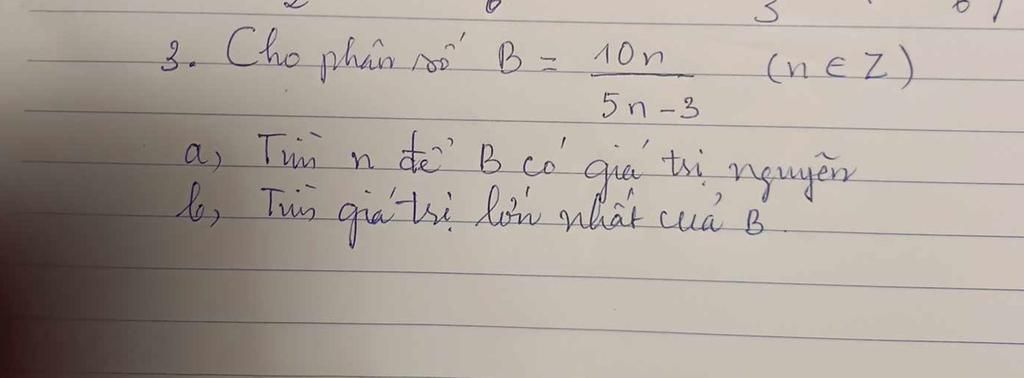 3. Cho phân số B = 10n / 5n - 3 (n ∈ Z)
a, Tìm n để B có giá trị nguyên
b, Tìm giá trị lớn nhất của B.